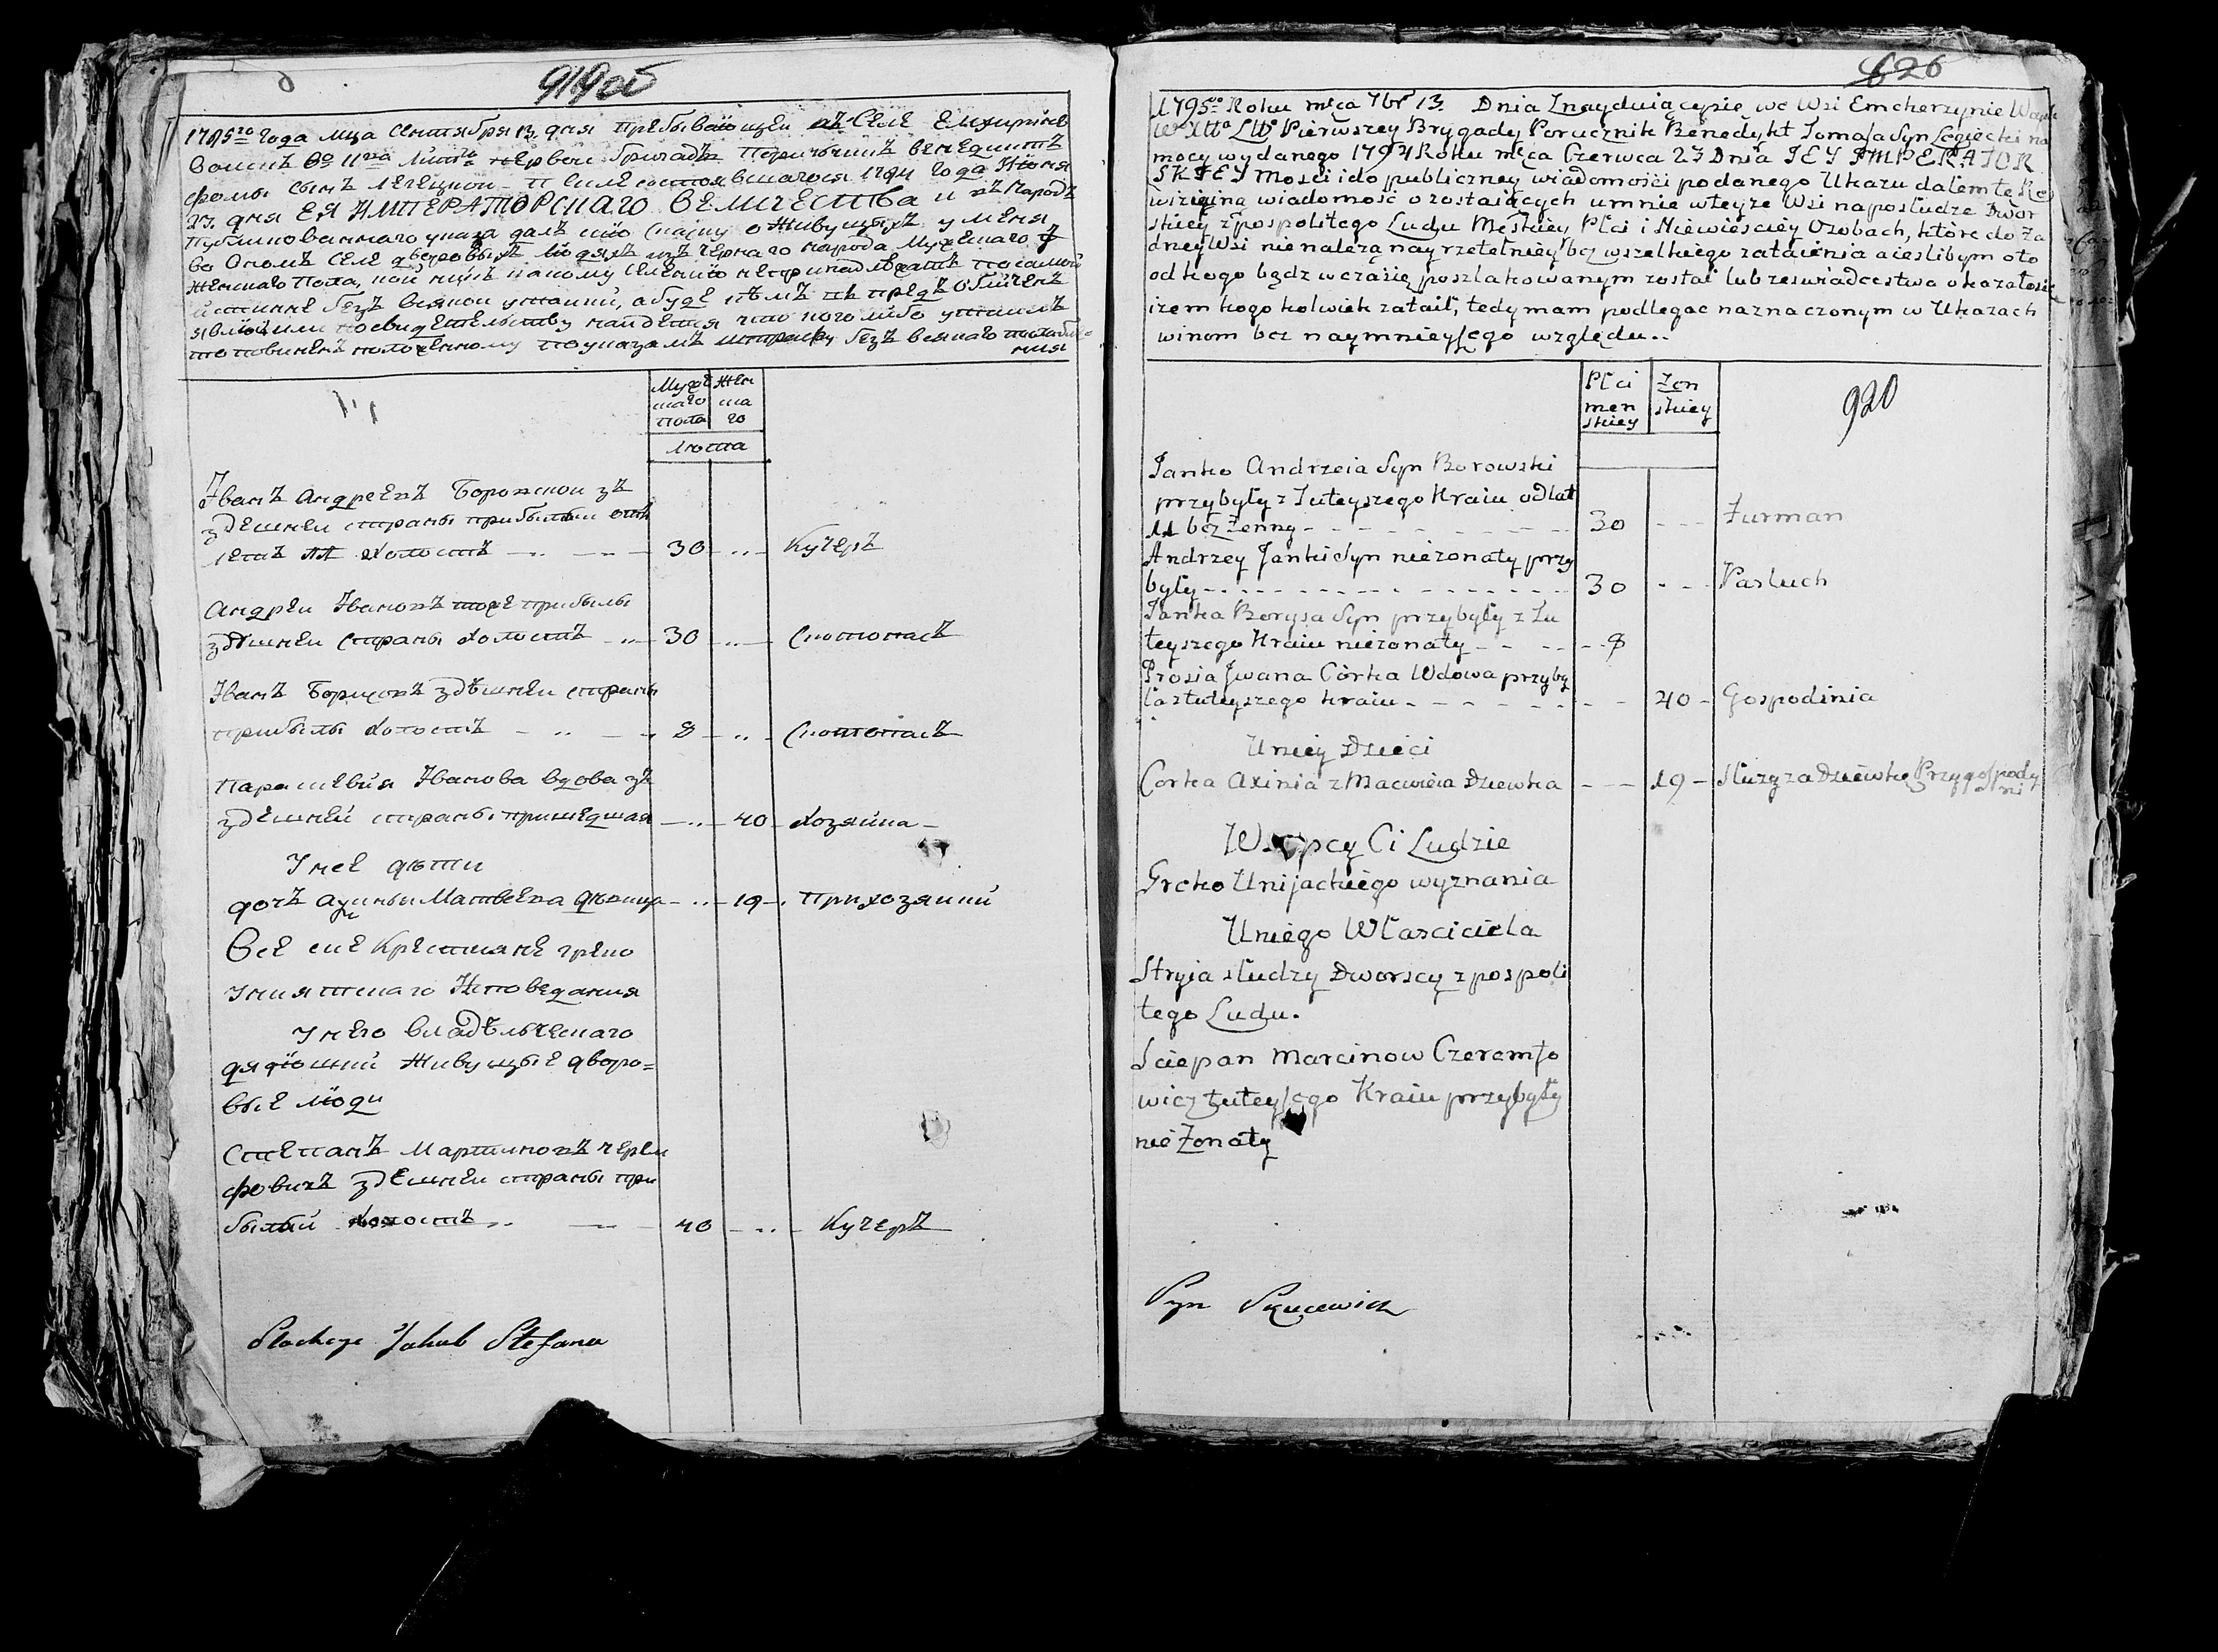 919об
1795го года мца Сентября 13. дня пребывающей въ Селе
войскъ Вго Кпа Лит первой бригады Поручикъ Бенедиктъ
Фомы сынъ состоявшагося 1794 года Июня
23. дня ЕЯ ИМПЕРАТОРСКАГО ВЕЛИЧЕСТВА и въ народъ
публикованнаго указа далъ сию скаску о живущихъ у меня
во ономъ селе дворовыхъ людяхъ изъ чернаго народа мужескаго
женскаго пола, кои
истинне безъ всякой утайки, а буде кемъ
явлюсь или по свидетельству найдется что кого либо утаилъ
то повиненъ положенному по указамъ штрафу безъ всякаго
Муже
скаго
пола
Жен
ска
го
Люта
Иванъ Андреевъ Боровской зъ
здешней страны прибылый отъ
летъ 11 холостъ 30 Кучеръ
Андрей Ивановъ тоже прибылы
здешней страны холостъ 30 Скотопасъ
Иванъ Борисовъ здешней страны
прибылы холостъ 8 Скотопасъ
Парасковия Иванова вдова зъ
здешней страны пришедшая 40 Хозяйка
У нее дети
дочь Матвеева девица 19 При хозяйки
Все сие Крестияне греко
униятскаго Исповедания
У него владельческаго
живущые дворо=
вые люди
Степанъ Мартиновъ Черем
фовичъ здешней страны при
былый холостъ 40 Кучеръ
Jakub Stefana
626
1795go Roku mca 7br 13. Dnia Znayduiącysie we Wsi Emcherzynie
Wo XLtta LWo Pierwszey Brygady Porucznik Benedykt Tomasza Syn na
mocy wydanego 1794 Roku mca Czerwca 23 Dnia JEY IMPERATOR
SKIEY Mości i do publiczney wiadomości podanego Ukazu dałem tę Re
wizijną wiadomość o zostaiących u mnie w teyze Wsi na posłudze Dwor
skiey z pospolitego Ludu Męskiey Płci i Niewieściey Ozobach, które do Ża
dney Wsi nie należą nayrzetelniey bez wszelkiego zataienia a ieslibym oto
od kogo bądz w czasie poszlakowanym został lub ze swiadcestwa okazałosie
iżem kogo kolwiek zataił, tedy mam podlegac naznaczonym w Ukazach
winom bez naymnieyszego względu..
Płci
men
skiey
Żon
skiey
920
Janko Andrzeia Syn Borowski
przybyły z Tuteyszego Kraiu od lat
11 bez Żenny 30 Furman
Andrzey Janki Syn nieżonaty przy
były 30 Pastuch
Janka Borysa Syn przybyły z Tu
teyszego Kraiu nieżonaty 8
Prosia Jwana Córka Wdowa przyby
ła z tuteyszego kraiu 40 Gospodinia
U niey Dzieci
Corka Axinia z Macwieia Dziewka 19 Służy za Dziewkę Przy gospody
ni
Wszyscy Ci Ludzie
Greko Unijackiego wyznania
U niego Własciciela
Stryja słudzy Dworscy z pospoli
tego Ludu.
Sciepan Marcinow Czeremfo
wicz tuteyszego Kraiu przybyły
nie Żonaty
Syn